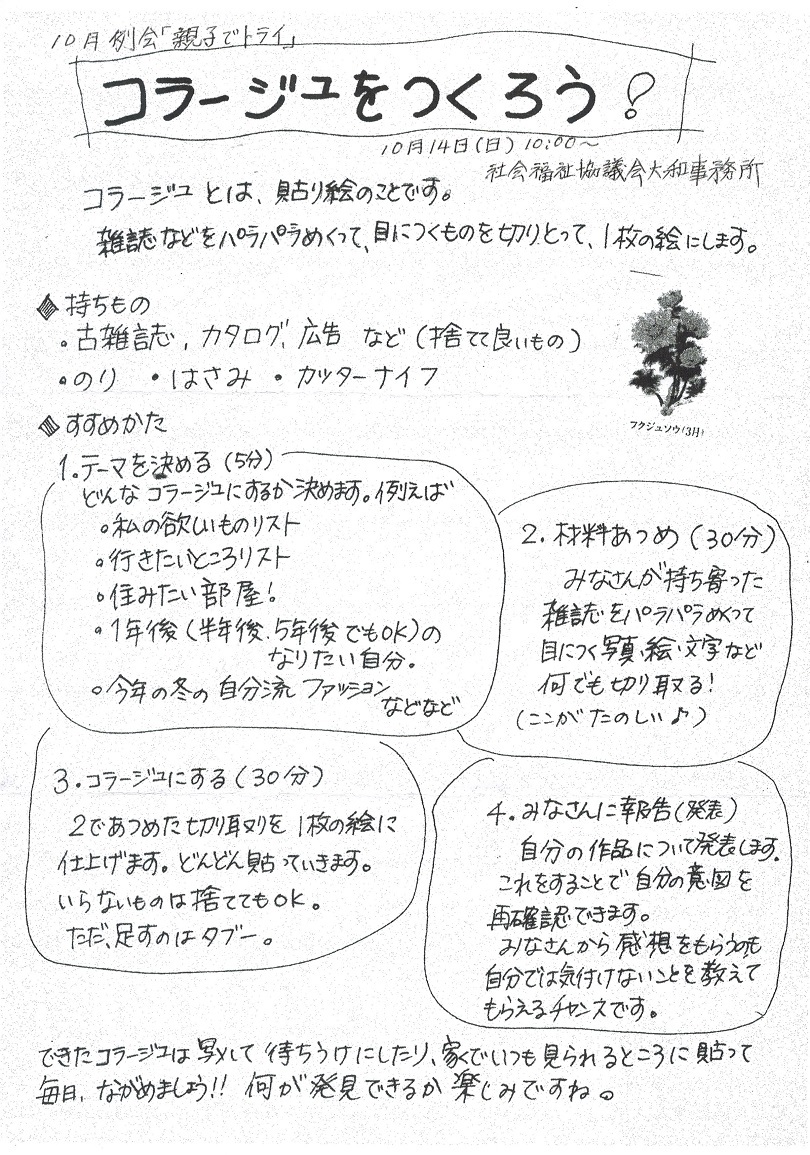 10月例会「親子でトライ」
コラージュをつくろう!
10月14日(日) 10:00~
社会福祉協議会大和事務所
コラージュとは、貼り絵のことです。
雑誌などをパラパラめくって、目につくものを切りとって、1枚の絵にします。
◆持ちもの
・古雑誌、カタログ、広告 など(捨てて良いもの)
・のり ・はさみ ・カッターナイフ
フクジュソウ(3月)
◆すすめかた
1.テーマを決める(5分)
どんなコラージュにするか決めます。例えば
・私の欲しいものリスト
・行きたいところリスト
・住みたい部屋!
・1年後(半年後、5年後でもOK)の
なりたい自分.
・今年の冬の自分流ファッション
などなど
2.材料あつめ(30分)
みなさんが持ち寄った
雑誌をパラパラめくって
目につく写真・絵・文字など
何でも切り取る!
(ここがたのしい♪)
3.コラージュにする(30分)
2であつめた切り取りを1枚の絵に
仕上げます。どんどん貼っていきます。
いらないものは捨ててもOK。
ただ、足すのはタブー。
4.みなさんに報告(発表)
自分の作品について発表します.
これをすることで自分の意図を
再確認できます。
みなさんから感想をもらうのも
自分では気付けないことを教えて
もらえるチャンスです。
できたコラージュは写メして待ちうけにしたり、家でいつも見られるところに貼って
毎日、ながめましょう!! 何が発見できるか楽しみですね。